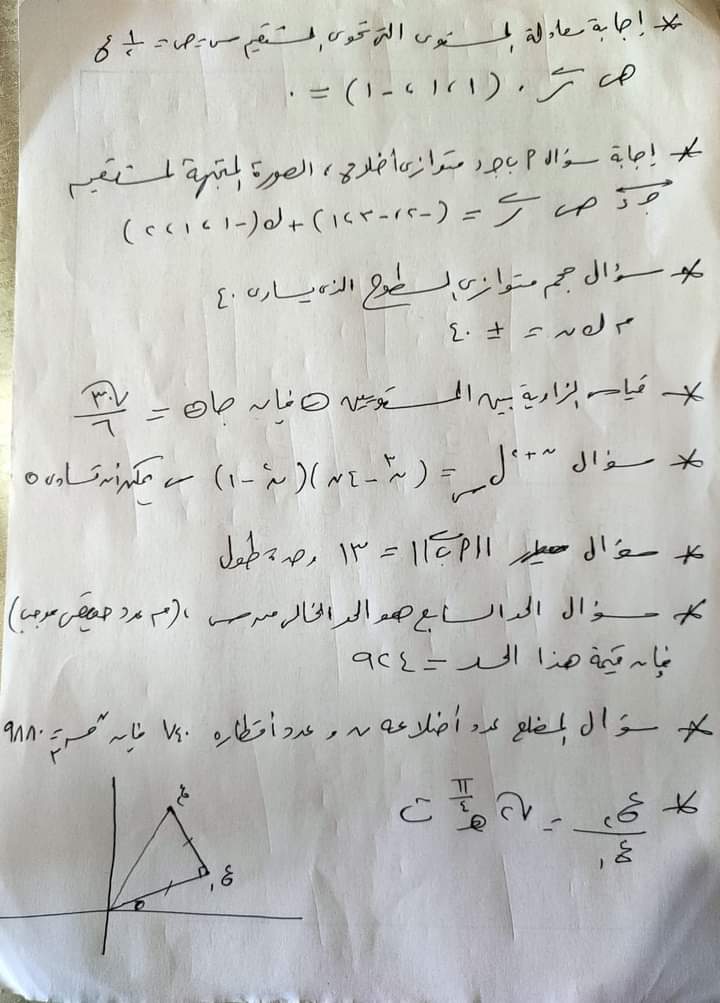 * إجابة معادلة المستوى التى تحوى المستقيم س = ص = ١/٢ ع
ص ر . (١ ، ١ ، -١) = ٠
* إجابة سؤال م ب جـ د متوازى أضلاع ، الصورة المتجهة لمستقيم
جـ د ص ر = (-٢ ، -٣ ، ١) + ك(-١ ، ١ ، ٢)
* سؤال حجم متوازى السطوح الذى يساوى ٤٠
م ك ن = ± ٤٠
* قياس الزاوية بين المستويين θ فإن جا θ = √٣٠/٦
* سؤال ن+٢ل س = (ن٣ - ٤ن)(ن٢ - ١) س يمكن أن تساوى ٥
* سؤال ||م ب|| = ١٣ وحدة طول
* سؤال الحد السابع هو الحد الخالى من س ، (م عدد حقيقى موجب)
فإن قيمة هذا الحد = ٩٢٤
* سؤال المضلع عدد أضلاعه ن و عدد أقطاره ٧٤٠ فإن نق٣ = ٩٨٨٠
* ع٢/ع١ = √٢ هـ π/٤ ت
ع٢
ع١
θ